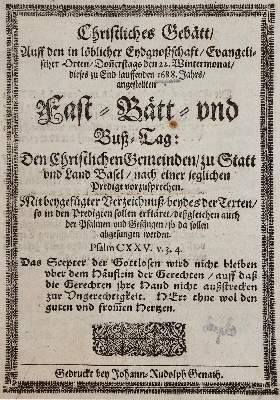 Christliches Gebätt/
Auff den in löblicher Eydgnoßschafft/ Evangeli-
scher Orten/ Donnerstags den 22. Wintermonat/
dieses zu End lauffenden 1688. Jahrs/
angestellten
Fast-Bätt- vnd
Buß-Tag:
Den Christlichen Gemeinden/ zu Statt
vnd Land Basel/ nach einer jeglichen
Predigt vorzusprechen.
Mit beygefügter Verzeichnuß/ beydes der Texten/
so in den Predigten sollen erkläret/ deßgleichen auch
der Psalmen vnd Gesängen/ so da sollen
abgesungen werden.
Psalm CXXV. v. 3. 4.
Das Scepter der Gottlosen wird nicht bleiben
vber dem Häuflin der Gerechten/ auff daß
die Gerechten ihre Hand nicht außstrecken
zur Ungerechtigkeit. HErr thue wol den
guten vnd frommen Hertzen.
Gedruckt bey Johann Rudolph Genath.